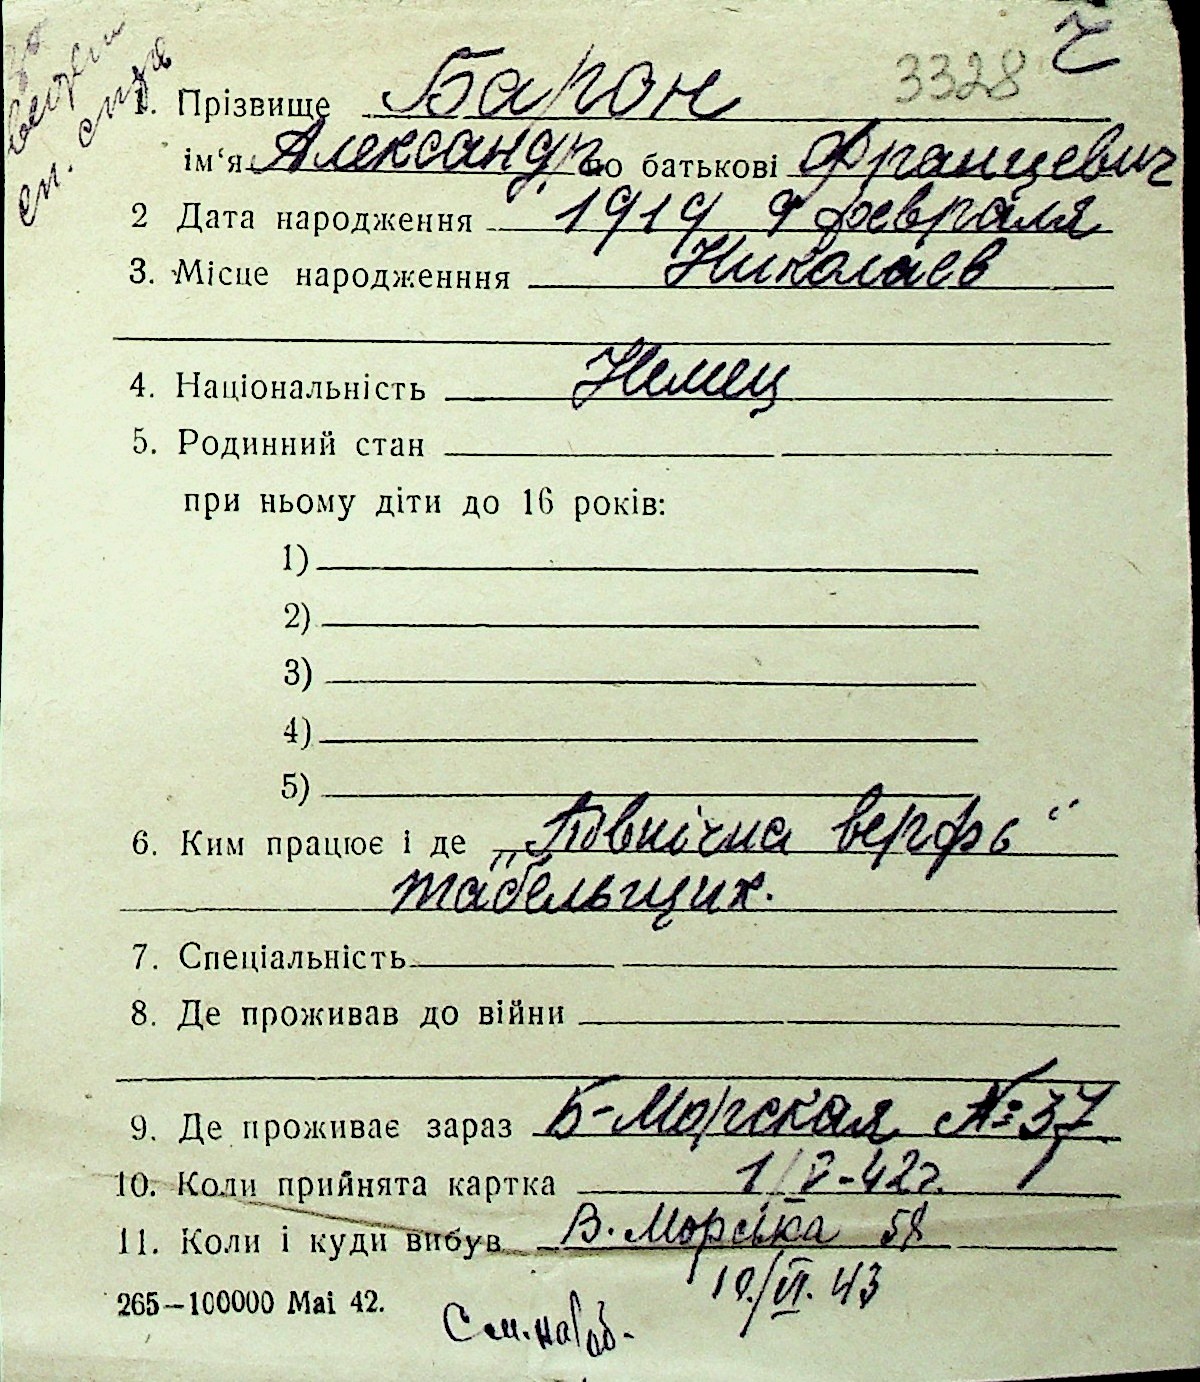 3328 Ч
1. Прізвище Барон
ім'я Александр по батькові Францевич
2 Дата народження 1919 9 февраля
3. Місце народженння Николаев
4. Національність Немец
5. Родинний стан
при ньому діти до 16 років:
1)
2)
3)
4)
5)
6. Ким працює і де „Північна верфь“
табельщик.
7. Спеціальність
8. Де проживав до війни
9. Де проживає зараз Б-Морская №37
10. Коли прийнята картка 1/V-42г.
11. Коли і куди вибув В. Морська 58
10./VI. 43
265—100000 Mai 42.
См. на об-